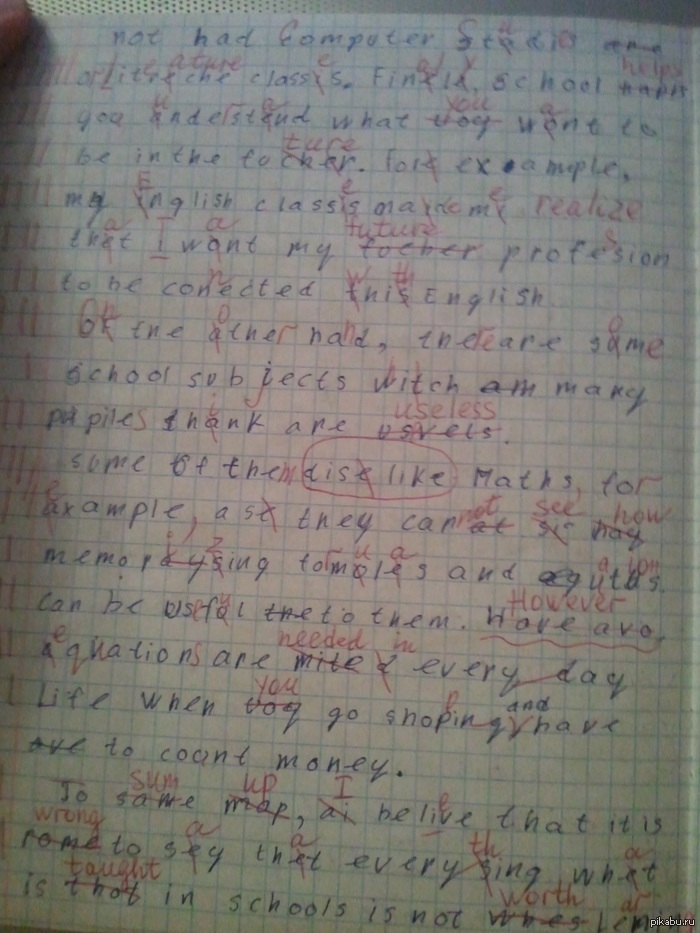 not had Computer Studies
or Literature classes. Finally, school helps
you understand what you want to
be in the future. For example,
my English classes made me realize
that I want my future profession
to be connected with English.
On the other hand, there are some
school subjects witch many
pupiles think are useless.
Some of them dislike Maths, for
example, as they cannot see how
memorizing formulas and
can be useful to them. However,
equations are needed in every day
life when you go shopping and have
to count money.
To sum up, I believe that it is
wrong to say that everything what
is taught in schools is not worth
pikabu.ru